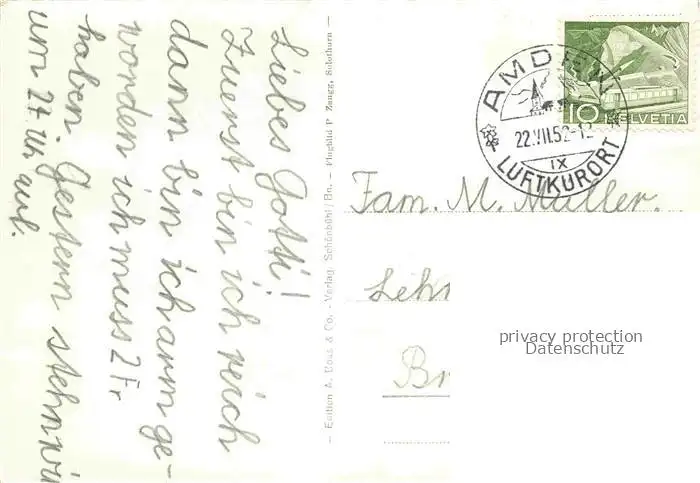 Liebes Gotti!
Zuerst bin ich reich
dann bin ich arm ge-
worden ich muss 2 Fr.
haben. Gestern stehn wir
um 27 Uhr auf.
— Edition A. Boss & Co. - Verlag, Schönbühl/Bn. — Flugbild P. Zaugg, Solothurn —
AMDEN
22.VII.52-12
IX
LUFTKURORT
10 HELVETIA
Fam. M. Müller.
Lehr
Br
privacy protection
Datenschutz